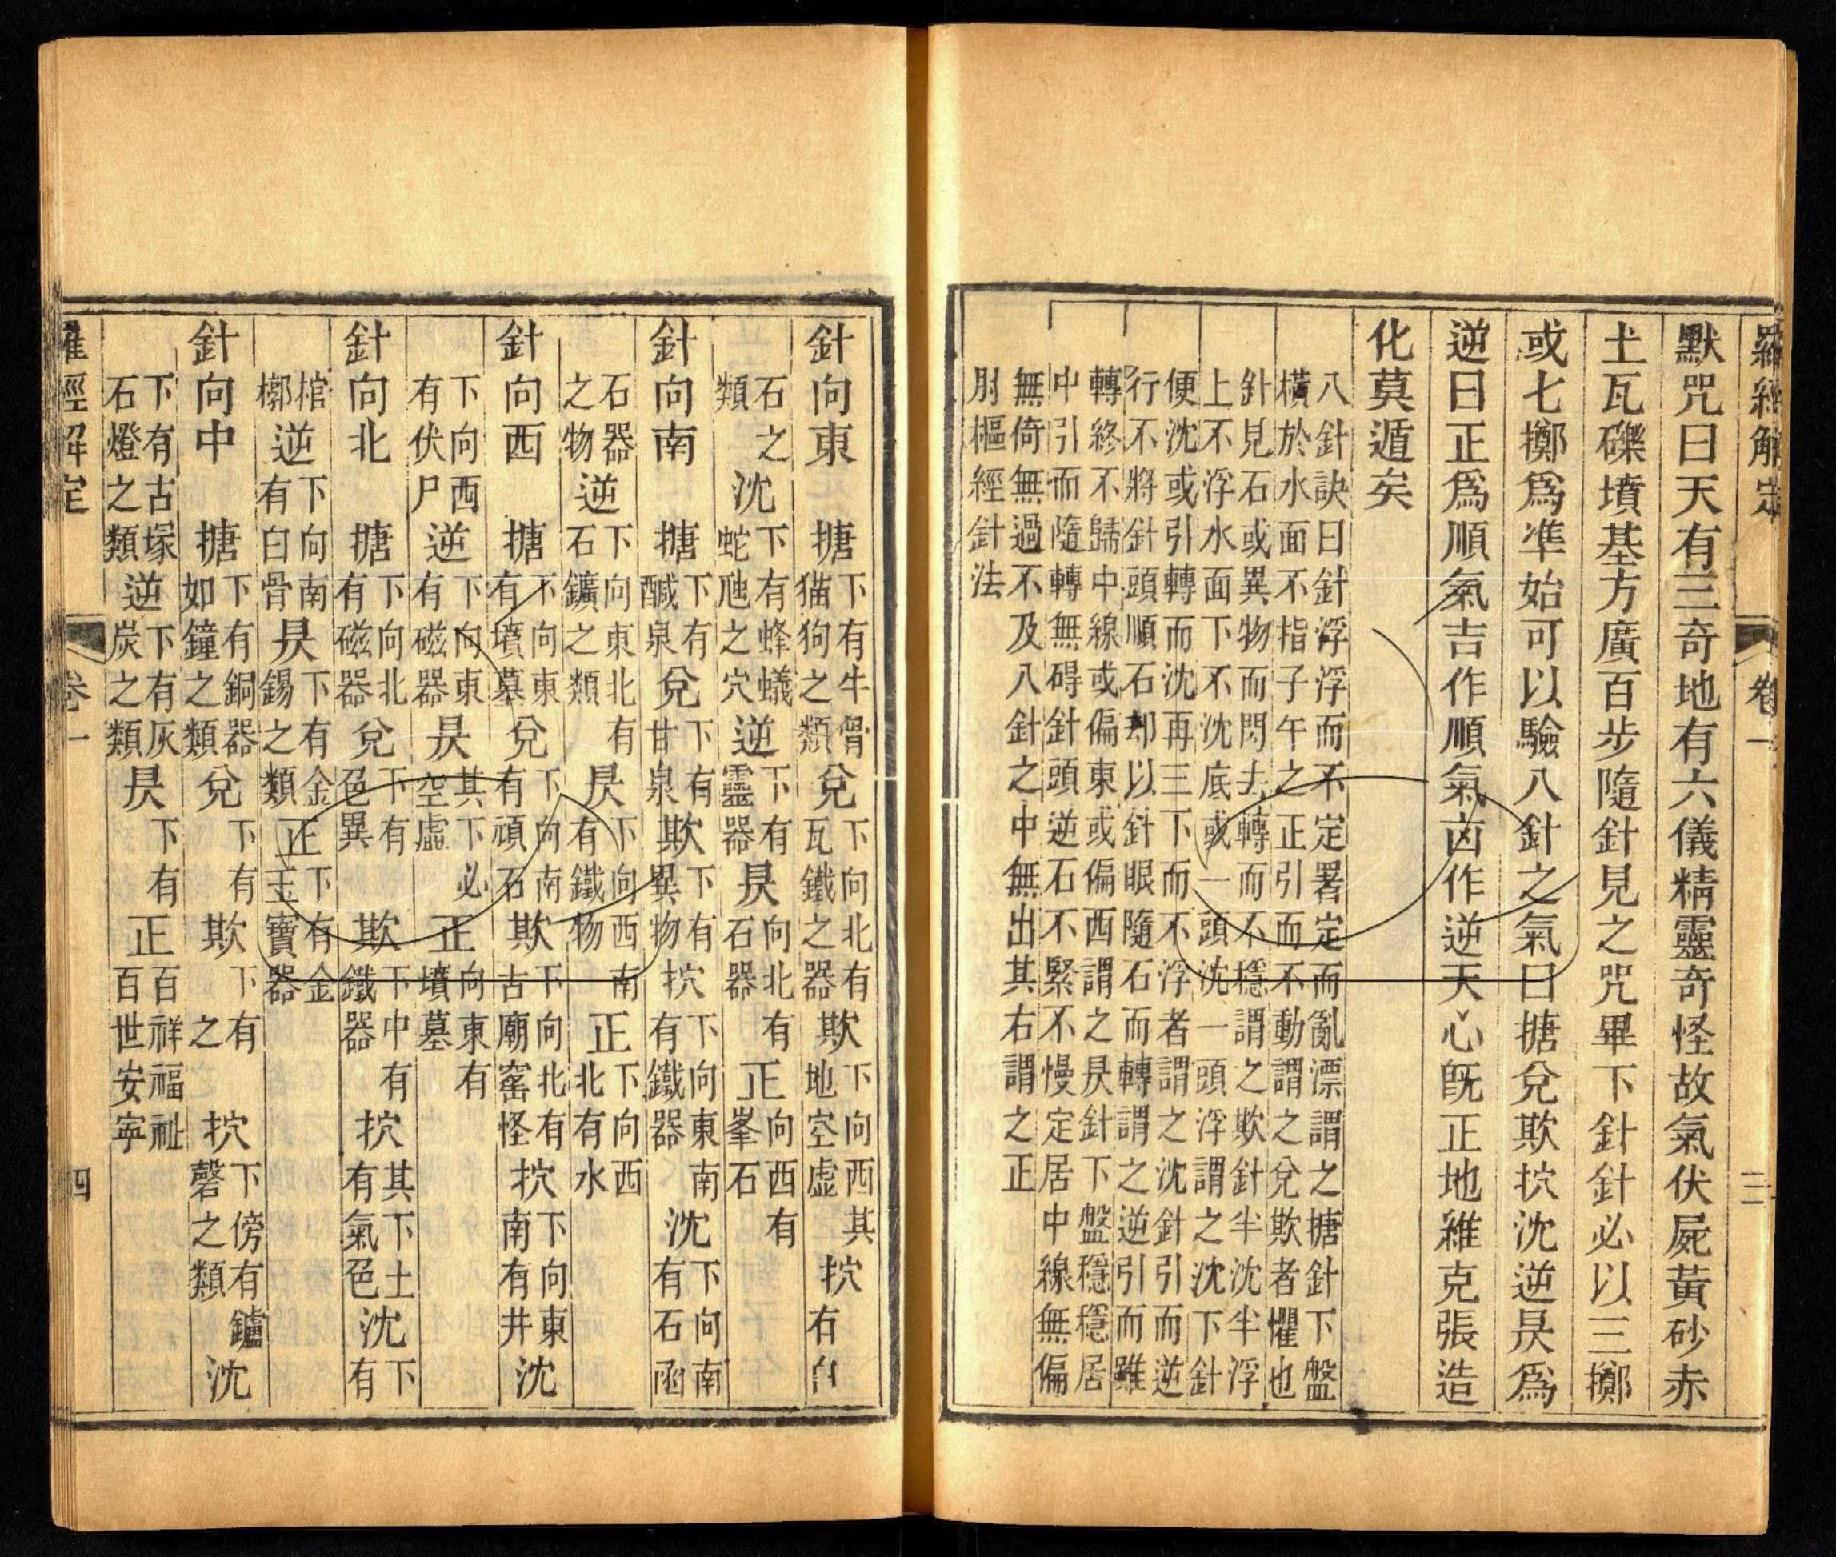 羅經解定 卷一 三
默咒曰天有三奇地有六儀精靈奇怪故氣伏屍黃砂赤
土瓦礫墳基方廣百步隨針見之咒畢下針針必以三擲
或七擲爲準始可以驗八針之氣曰搪兌欺㧒沈逆㫷爲
逆曰正爲順氣吉作順氣凶作逆天心旣正地維克張造
化莫遁矣
八針訣曰針浮浮而不定署定而亂漂謂之搪針下盤
橫於水面不指子午之正引而不動謂之兌欺者懼也
針見石或異物而閃去轉而不穩謂之欺針半沈半浮
上不浮水面下不沈底或一頭沈一頭浮謂之沈下針
便沈或引轉而沈再三下而不浮者謂之沈針引而逆
行不將針頭順石却以針眼隨石而轉謂之逆引而雖
轉終不歸中線或偏東或偏西謂之㫷針下盤穩穩居
中引而隨轉無碍針頭逆石不緊不慢定居中線無偏
無倚無過不及八針之中無出其右謂之正
肘樞經針法
針向東 搪下有牛骨猫狗之類 兌下向北有瓦鐵之器 欺下向西其地空虛 㧒右
石之類 沈下有蜂蟻蛇虺之穴 逆下有靈器 㫷向北有石器 正向西有峯石
針向南 搪下有醎泉 兌下有甘泉 欺下有異物 㧒下向東南有鐵器 沈下向南有石函
石器之物 逆下向東北有石鑛之類 㫷下向西南有鐵物 正下向西北有水
針向西 搪下向東有墳墓 兌下向南有頑石 欺下向北有古廟窰怪 㧒下向東南有井 沈
下向西有伏尸 逆下向東有磁器 㫷其下必空虛 正向東有墳墓
針向北 搪下向北有磁器 兌下有色異 欺下中有鐵器 㧒其下土有氣色 沈下有
棺槨 逆下向南有白骨 㫷下有金錫之類 正下有金玉寶器
針向中 搪下有銅器如鐘之類 兌下有 欺下有之 㧒下傍有鑪磬之類 沈
下有古塚石燈之類 逆下有灰炭之類 㫷下有 正百祥福祉百世安寧
羅經解定 卷一 四